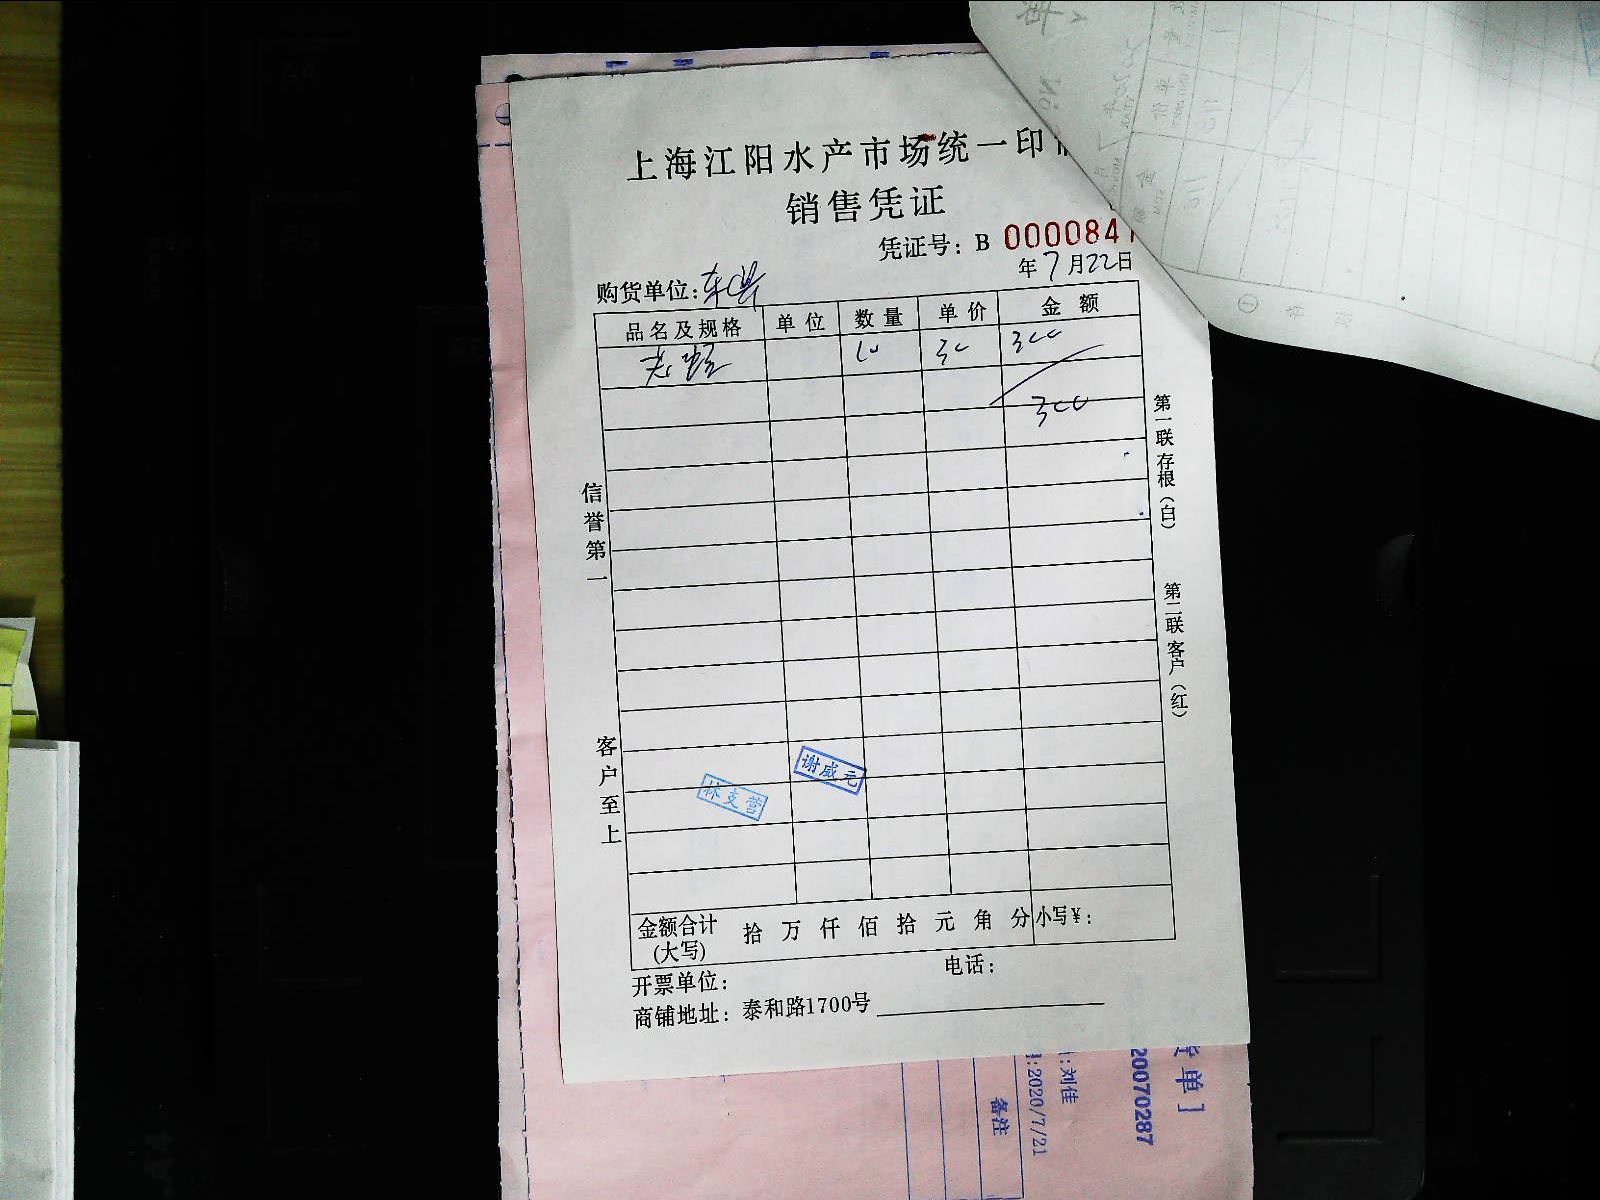 上海江阳水产市场统一印
销售凭证
凭证号：B 0000841
年7月22日
购货单位：
品名及规格 单位 数量 单价 金额
10 30 300
300
信誉第一
客户至上
第一联存根（白）
第二联客户（红）
谢咸元
林支营
金额合计(大写) 拾 万 仟 佰 拾 元 角 分 小写¥：
开票单位： 电话：
商铺地址：泰和路1700号
单]
20070287
:刘佳
:2020/7/21
备注